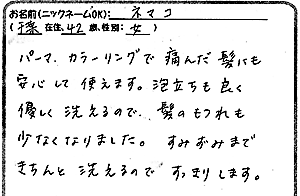 お名前(ニックネームOK): ネマコ
(千葉 在住, 42 歳、性別: 女 )
パーマ、カラーリングで痛んだ髪にも
安心して使えます。泡立ちも良く
優しく洗えるので、髪のもつれも
少なくなりました。すみずみまで
きちんと洗えるのですっきりします。